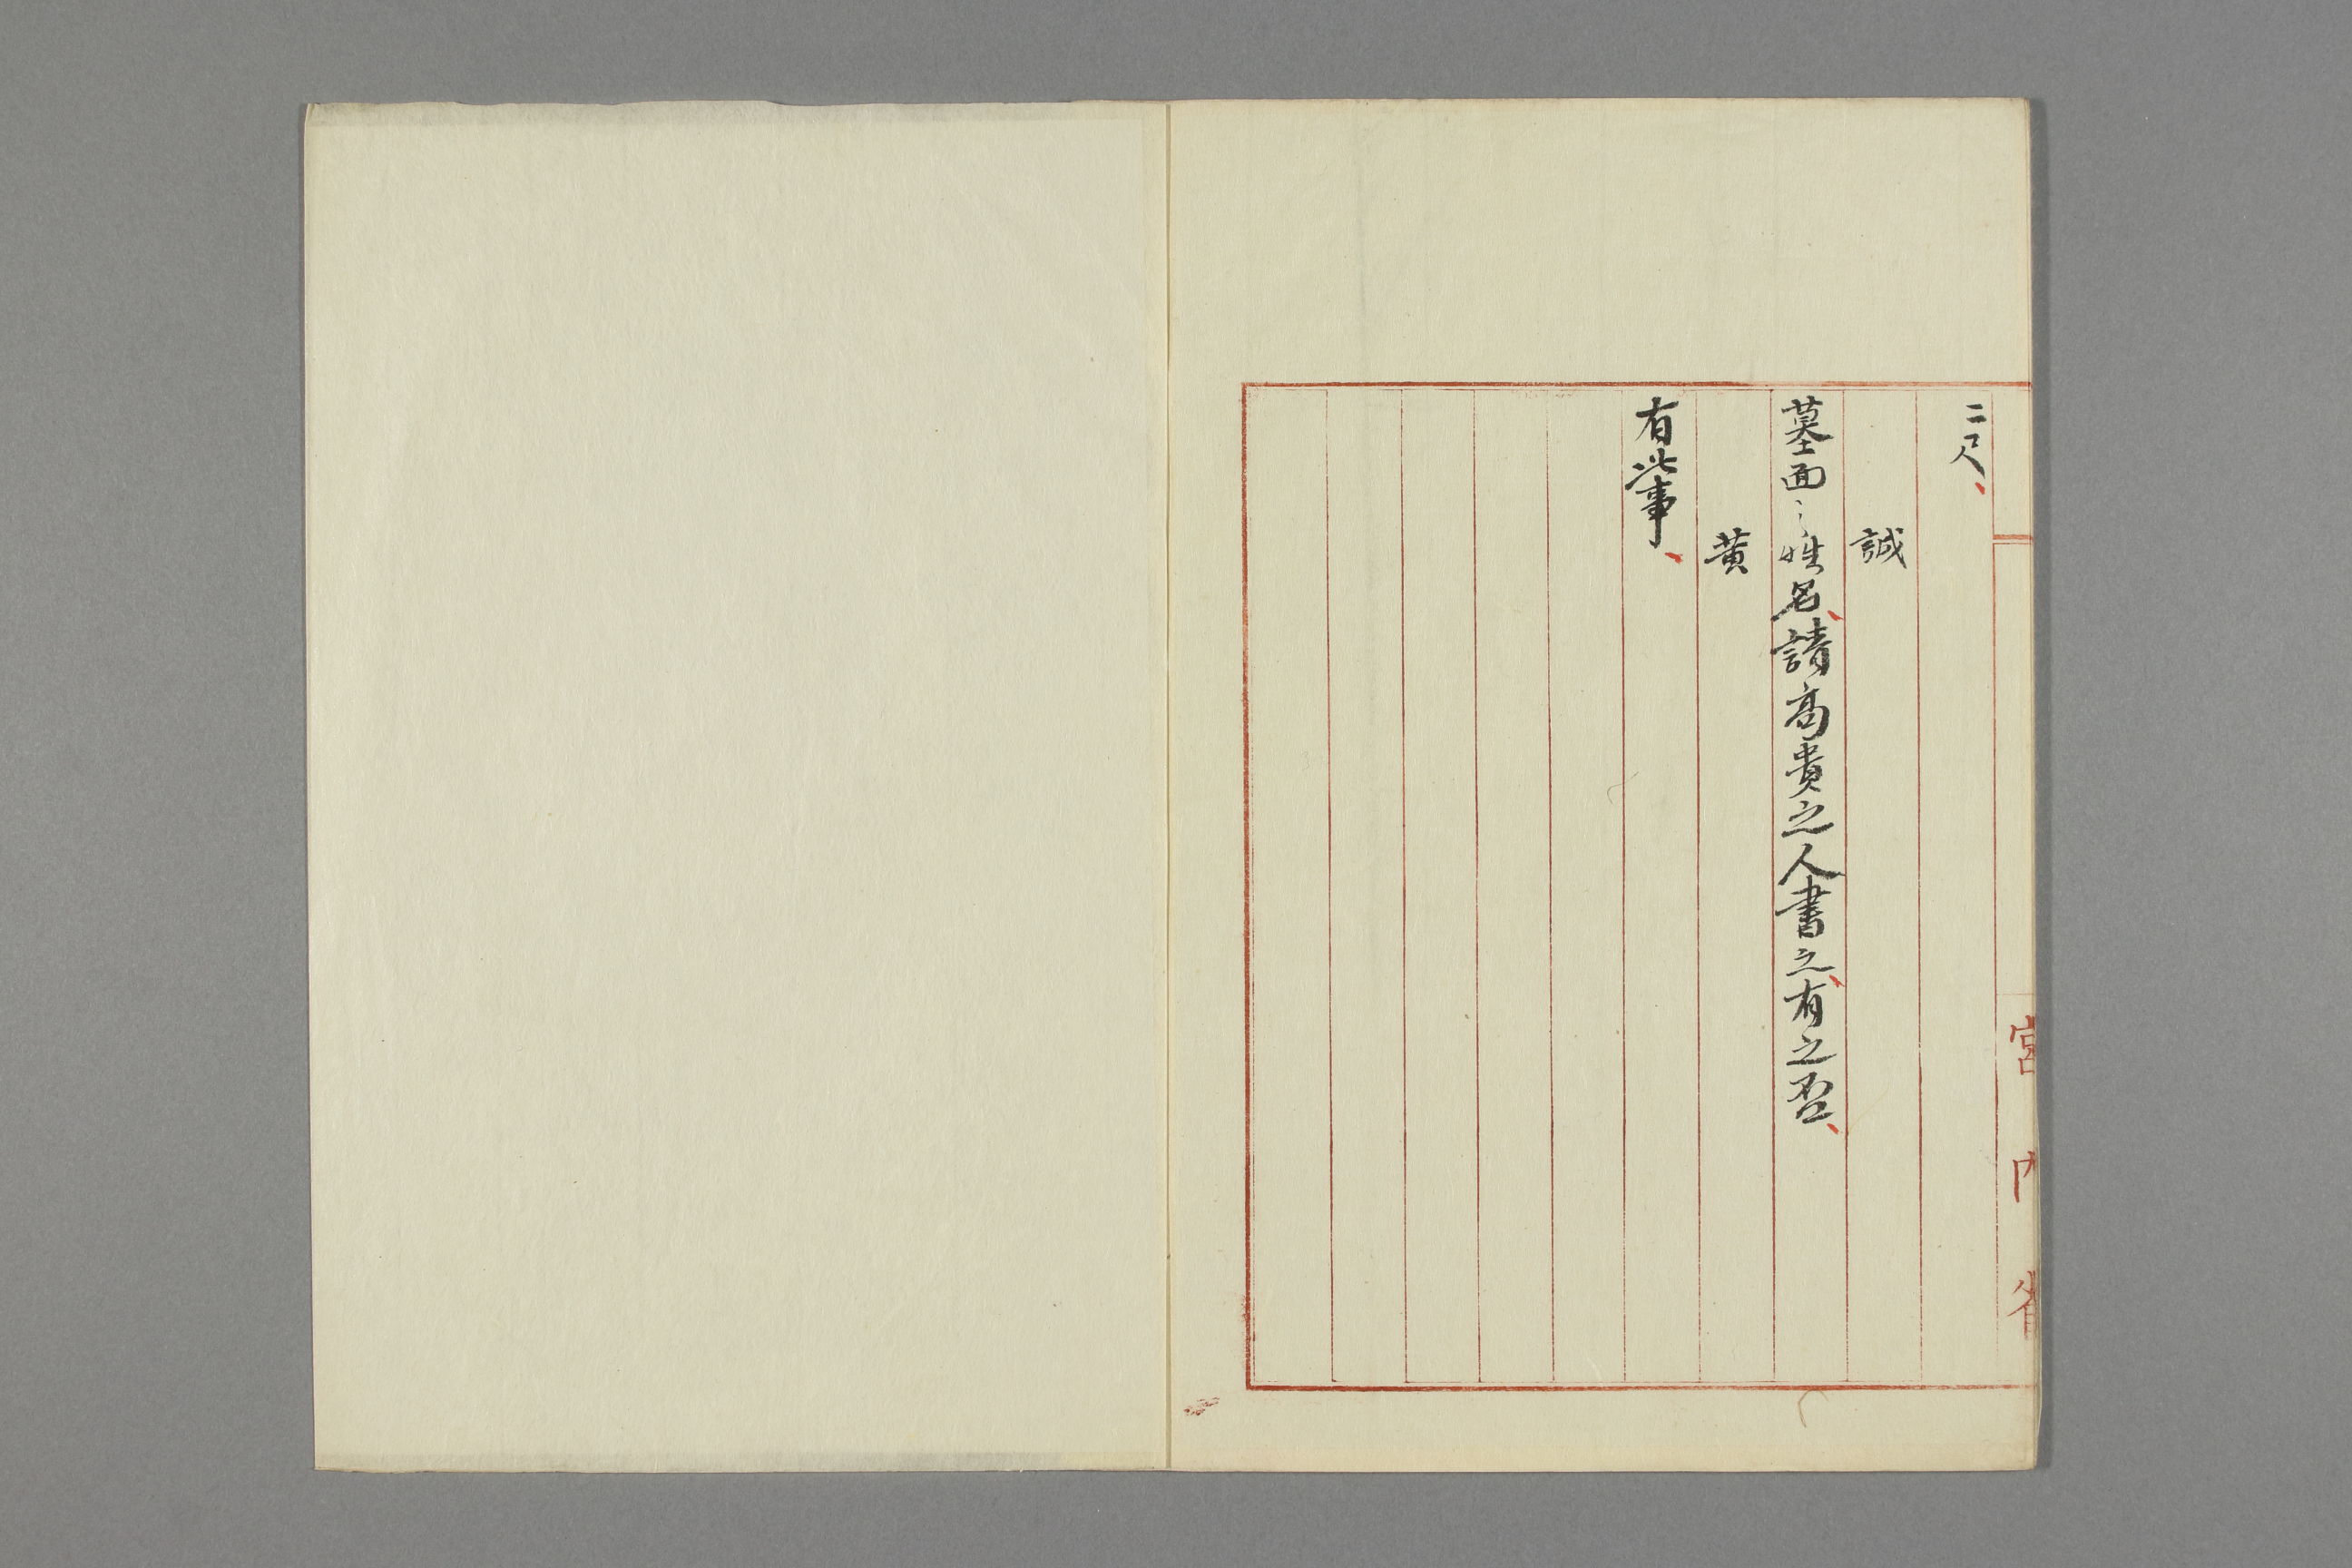 宮内省
二尺、
誠
墓面之姓名、請高貴之人書之、有之否、
黄
有此事、